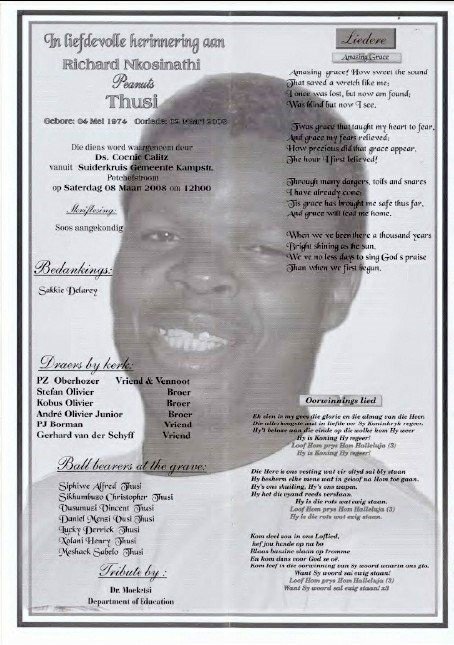 In liefdevolle herinnering aan
Richard Nkosinathi
Peanuts
Thusi
Gebore: 06 Mei 1976 Oorlede: 2008
Die diens word waargeneem deur
Ds. Coenie Calitz
vanuit Suiderkruis Gemeente Kampstr.
Potchefstroom
op Saterdag 08 Maar 2008 om 12h00
Skriflesing:
Soos aangekondig
Bedankings:
Sakkie Delarey
Draers by kerk:
PZ Oberhozer Vriend & Vennoot
Stefan Olivier Broer
Kobus Olivier Broer
André Olivier Junior Broer
PJ Borman Vriend
Gerhard van der Schyff Vriend
Ball bearers at the grave:
Siphiwe Alfred Thusi
Sikhumbuzo Christopher Thusi
Vusumuzi Vincent Thusi
Daniel Menzi Vusi Thusi
Lucky Derrick Thusi
Xolani Henry Thusi
Meshack Sabelo Thusi
Tribute by :
Dr. Moeketsi
Department of Education
Liedere
Amazing Grace
Amazing grace! How sweet the sound
That saved a wretch like me;
I once was lost, but now am found;
Was blind but now I see.
'Twas grace that taught my heart to fear,
And grace my fears relieved;
How precious did that grace appear,
The hour I first believed!
Through many dangers, toils and snares
I have already come;
'Tis grace has brought me safe thus far,
And grace will lead me home.
When we've been there a thousand years
Bright shining as he sun,
We've no less days to sing God's praise
Than when we first began.
Oorwinnings lied
Ek sien in my gees die glorie en die almag van die Heer
Die allerhoogste wat in liefde oor Sy Koninkryk regeer.
Hy't belowe aan die einde op die wolke kom Hy weer
Hy is Koning Hy regeer!
Loof Hom prys Hom Halleluja (3)
Hy is Koning Hy regeer!
Die Here is ons vesting wat vir altyd sal bly staan
Hy beskerm elke mens wat in geloof na Hom toe gaan.
Hy's ons skuiling, Hy's ons wapen.
Hy het die vyand reeds verslaan.
Hy is die rots wat ewig staan.
Loof Hom prys Hom Halleluja (3)
Hy is die rots wat ewig staan.
Kom deel nou in ons Loflied,
hef jou hande op na bo
Blaas basuine slaan op tromme
En kom dans voor God se oë.
Kom leef in die oorwinning van Sy woord waarin ons glo.
Want Sy woord sal ewig staan!
Loof Hom prys Hom Halleluja (3)
Want Sy woord sal ewig staan! x3